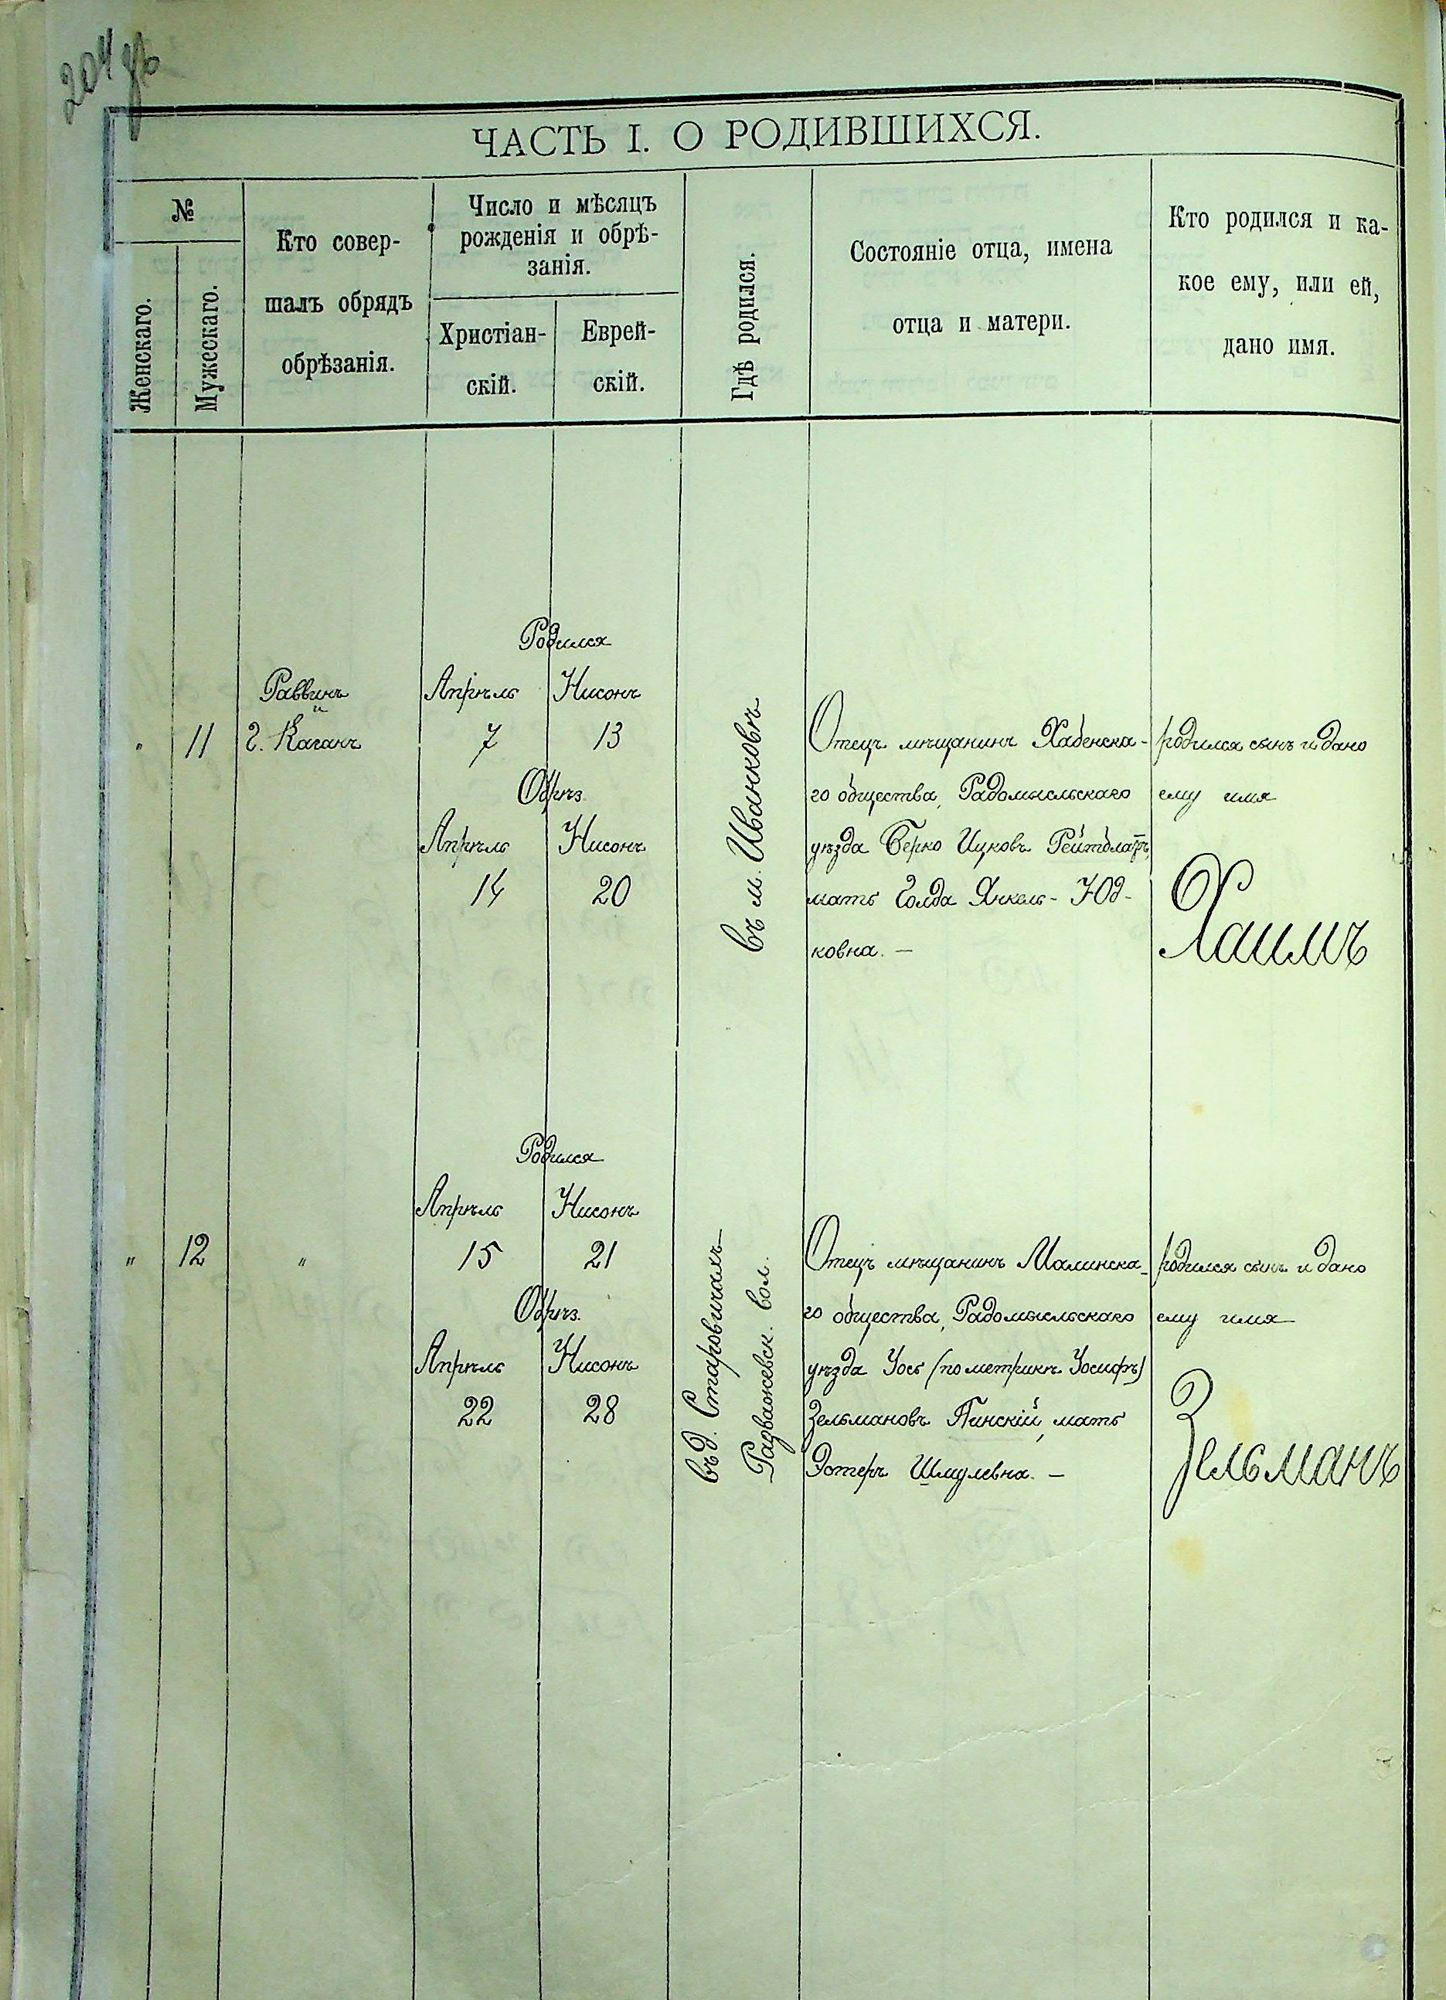 204 об
ЧАСТЬ I. О РОДИВШИХСЯ.
№
Женскаго.
Мужескаго.
Кто совер-
шалъ обрядъ
обрѣзанія.
Число и мѣсяцъ
рожденія и обрѣ-
занія.
Христіан-
скій.
Еврей-
скій.
Гдѣ родился.
Состояніе отца, имена
отца и матери.
Кто родился и ка-
кое ему, или ей,
дано имя.
"
11
Раввинъ
и
г. Каганъ
Родился
Апрѣль Нисонъ
7 13
Обрѣз.
Апрѣль Нисонъ
14 20
въ м. Иванковѣ
Отецъ мѣщанинъ Хабенска-
го общества, Радомысльскаго
уѣзда Берко Ицковъ Рейтблатъ,
мать Голда Янкель-Юд-
ковна. —
родился сынъ и дано
ему имя
Хаимъ
"
12
"
Родился
Апрѣль Нисонъ
15 21
Обрѣз.
Апрѣль Нисонъ
22 28
въ д. Старовичахъ
Радважевск. вол.
Отецъ мѣщанинъ Малинска-
го общества, Радомысльскаго
уѣзда Іось (по метрикѣ Іосифъ)
Зельмановъ Пинскій, мать
Эстеръ Шмулевна. —
родился сынъ и дано
ему имя
Зельманъ